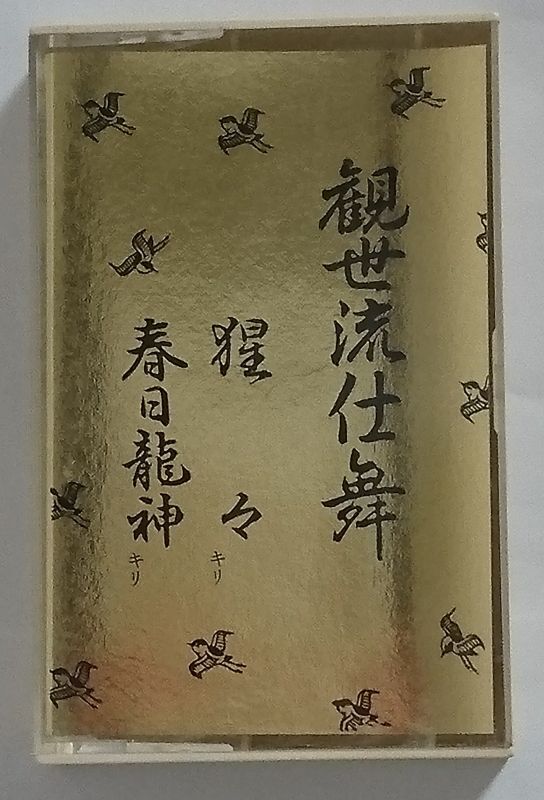 観世流仕舞
猩々キリ
春日龍神キリ